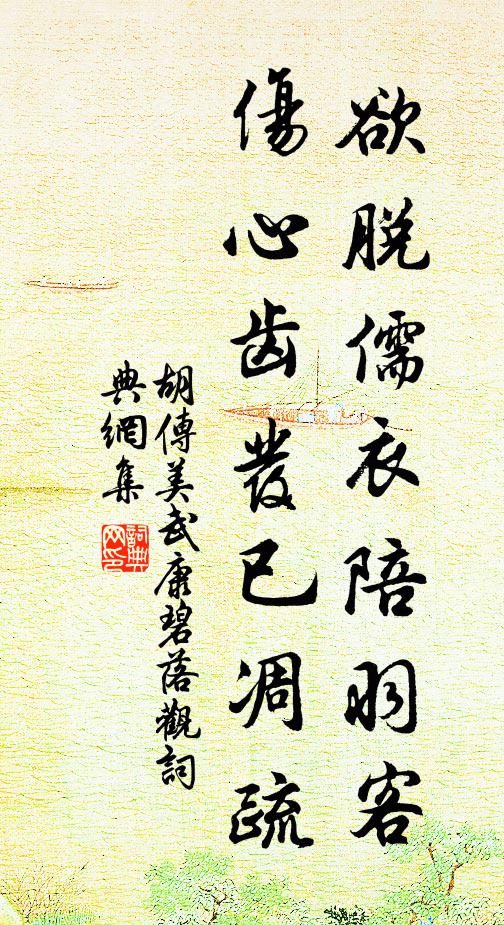 欲脫儒衣陪羽客
傷心齿發已凋疏
胡傳美武康碧落觀詞
典網集
詞典
网印